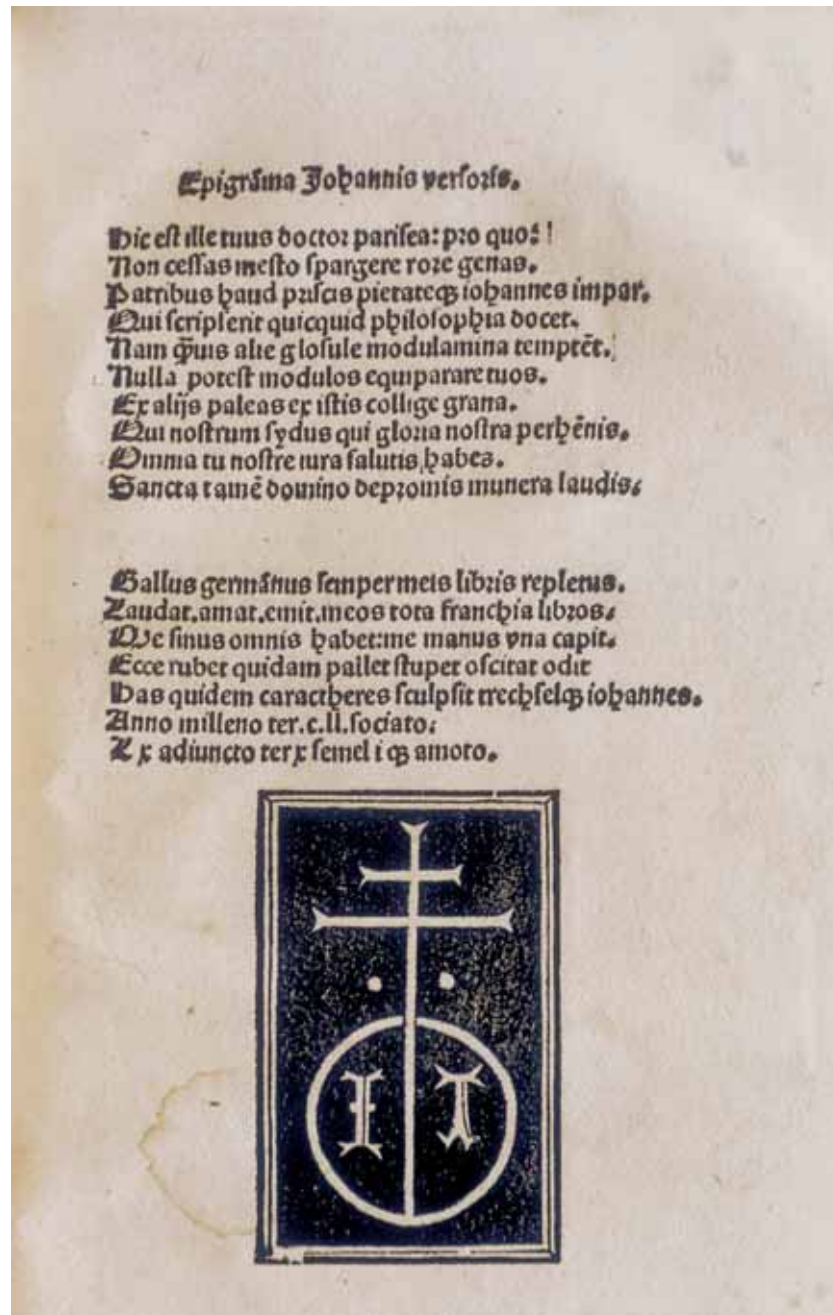 Epigrāma Johannis versoris.
Hic est ille tuus doctor parisea: pro quo:
Non cessas mesto spargere rore genas.
Patribus haud priscis pietateqʒ iohannes impar.
Qui scripserit quicquid philosophia docet.
Nam q̄uis alie glosule modulamina temptēt.
Nulla potest modulos equiparare tuos.
Ex alijs paleas ex istis collige grana.
Qui nostrum sydus qui gloria nostra perhēnis.
Omnia tu nostre iura salutis habes.
Sancta tamē domino depromis munera laudis:
Gallus germānus semper meis libris repletus.
Laudat.amat.emit.meos tota franchia libros:
Me sinus omnis habet:me manus vna capit.
Ecce rubet quidam pallet stupet oscitat odit
Has quidem caractheres sculpsit trechselqʒ iohannes.
Anno milleno ter.c.ll.sociato:
L x adiuncto ter x semel i qʒ amoto.
I T